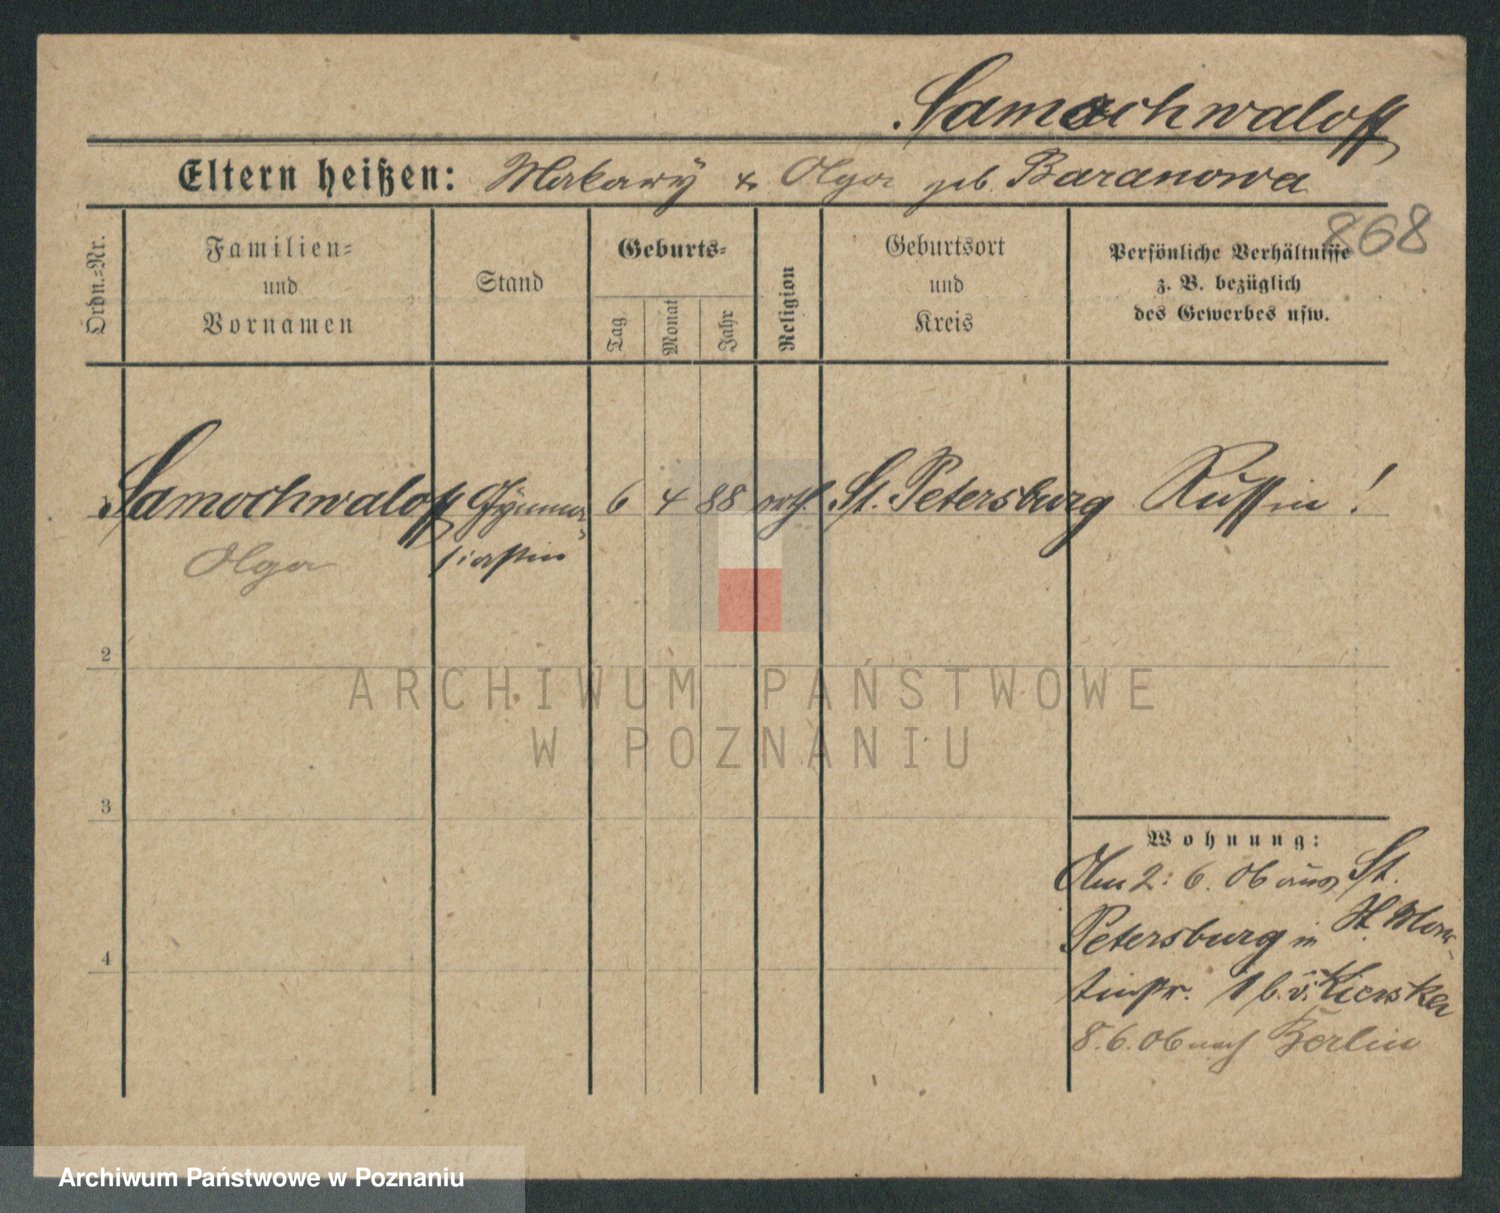 Samochwaloff
Eltern heißen: Makary & Olga geb. Baranowa
868
Ordn.=Nr.
Familien=
und
Vornamen
Stand
Geburts=
Tag
Monat
Jahr
Religion
Geburtsort
und
Kreis
Persönliche Verhältnisse
z. B. bezüglich
des Gewerbes usw.
Samochwaloff Gymna= 6 4 88 orth. St. Petersburg Russin!
Olga siastin
2
3
4
Wohnung:
Am 2. 6. 06 aus St.
Petersburg in St. Mar=
tinstr. 1 b. v.
8. 6. 06 nach Berlin
ARCHIWUM PAŃSTWOWE
W POZNANIU
Archiwum Państwowe w Poznaniu